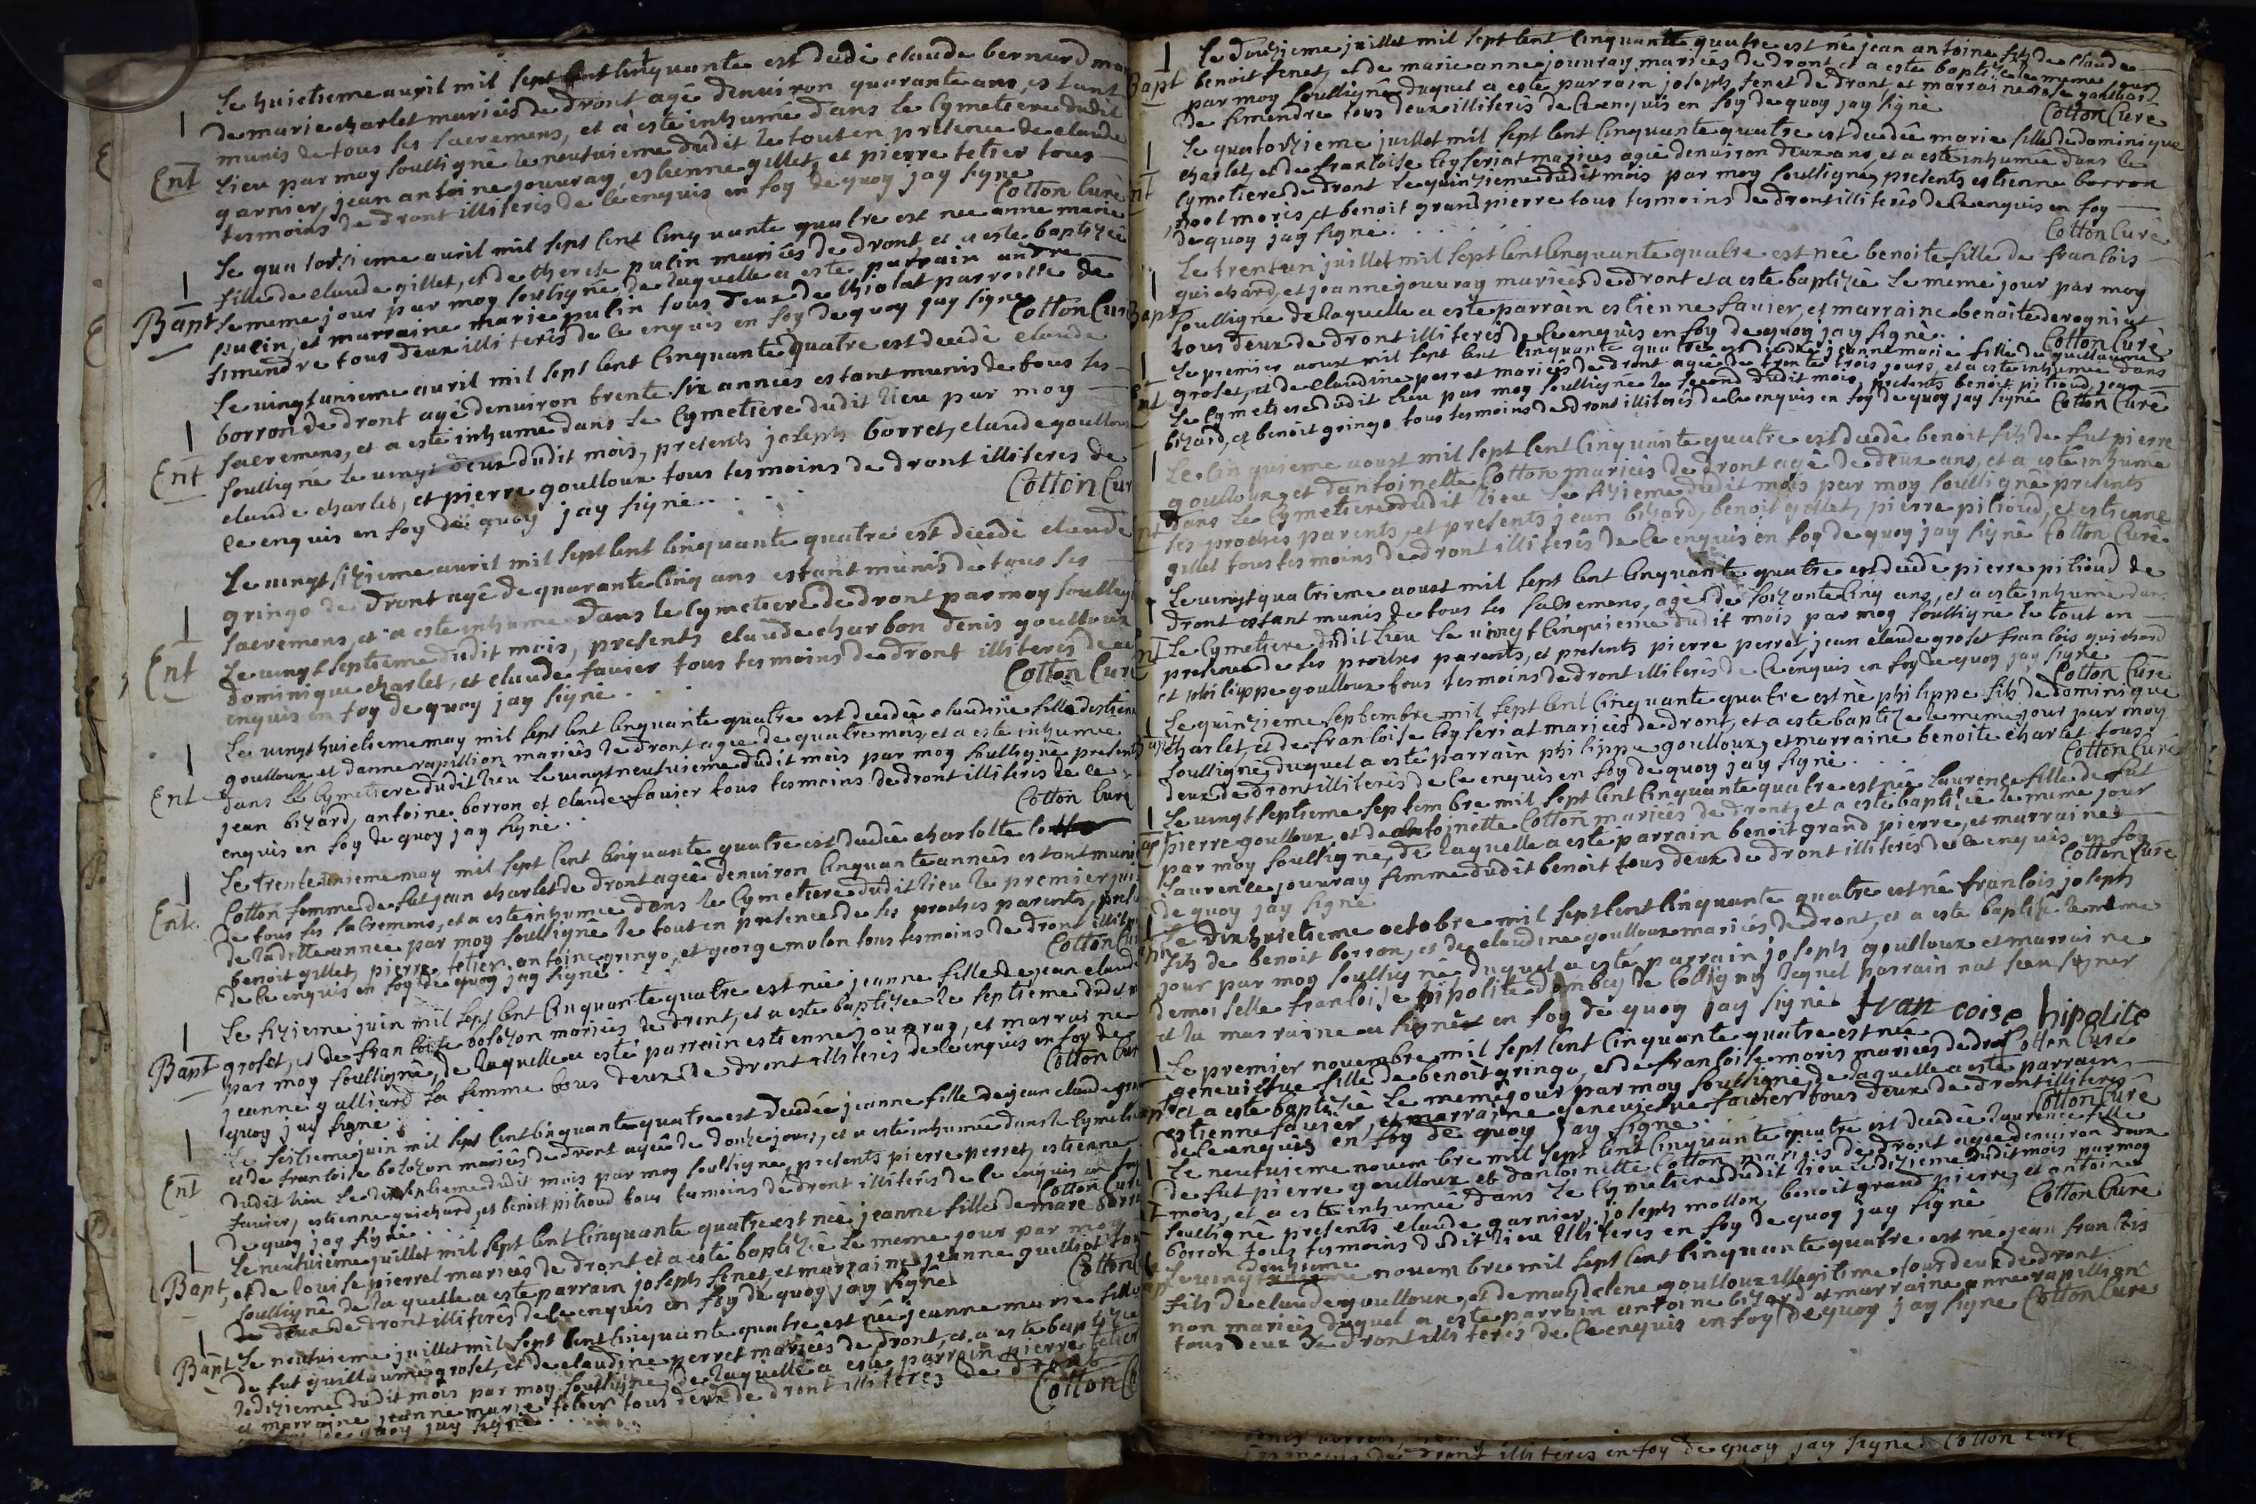 Le huictieme avril mil sept cent cinquante est decede claude bernard
de marie charlet mariés de dront agé denviron quarante ans, estant
munis de tous ses sacremens, et a esté inhumé dans le cymetiere dudit
Ent lieu par moy soussigné le neufvieme dudit le tout en presence de claude
garnier, jean antoine jouvray estienne gillet, et pierre tetier tous
tesmoins de dront illiterés de ce enquis en foy de quoy jay signé
Cotton Curé
Le quatorzieme avril mil sept cent cinquante quatre est nee anne marie
fille de claude gillet, et de therese pulin mariés de dront, et a este baptizée
Bapt le meme jour par moy soussigné de laquelle a esté parrain andre
pulin, et marraine marie pulin tous deux de thiolat parroisse de
simendre tous deux illiterés de ce enquis en foy de quoy jay signé Cotton Curé
Le vingtunieme avril mil sept cent cinquante quatre est decedé claude
borron de dront agé denviron trente six années estant munis de tous ses
sacremens, et a esté inhumé dans le cymetiere dudit lieu par moy
Ent soussigné le vingt deux dudit mois, presents joseph borret, claude goulloux
claude charlet, et pierre goulloux tous tesmoins de dront illiterés de
ce enquis en foy de quoy jay signé . . . . Cotton Curé
Le vingt sizieme avril mil sept cent cinquante quatre est decedé claude
gringo de dront agé de quarante cinq ans estant munis de tous ses
sacremens, et a esté inhumé dans le cymetiere de dront par moy soussigné
Ent le vingt septieme dudit mois, presents claude charbon denis goulloux
dominique charlet, et claude favier tous tesmoins de dront illiterés de ce
enquis en foy de quoy jay signé . . . Cotton Curé
Le vingt huictieme may mil sept cent cinquante quatre est decedée claudine fille destienne
goulloux et danne rapillion mariés de dront agée de quatre mois, et a esté inhumée
Ent dans le cymetiere dudit lieu le vingt neufvieme dudit mois par moy soussigné presents
jean bizard, antoine borron et claude favier tous tesmoins de dront illiterés de ce
enquis en foy de quoy jay signé . . Cotton Curé
Le trente unieme may mil sept cent cinquante quatre est decedée charlotte
Cotton femme de fut jean charlet de dront agée denviron cinquante années estant munie
Ent. de tous ses sacremens, et a esté inhumée dans le cymetiere dudit lieu le premier juin
de laditte année par moy soussigné le tout en presence de ses proches parents, presents
benoit gillet, pierre tetier antoine gringo, et george molon tous tesmoins de dront illiterés
de ce enquis en foy de quoy jay signé. Cotton Curé
Le sizieme juin mil sept cent cinquante quatre est née jeanne fille de jean claude
Bapt groset, et de francoise bolozon mariés de dront, et a este baptizée le septieme dudit
par moy soussigné, de laquelle a esté parrain estienne jouvray, et marraine
jeanne galliard sa femme tous deux de dront illiterés de ce enquis en foy de
quoy jay signé . Cotton Curé
Le seizieme juin mil sept cent cinquante quatre est decedée jeanne fille de jean claude
et de francoise bolozon mariés de dront agée de douze jours, et a esté inhumée dans le cymetiere
Ent dudit lieu le dixseptieme dudit mois par moy soussigné, presents pierre perret, estienne
favier, estienne guichard, et benoit pitioud tous tesmoins de dront illiterés de ce enquis en foy
de quoy jay signé . Cotton Curé
Le neufvieme juillet mil sept cent cinquante quatre est née jeanne fille de marc
Bapt, et de louise pierrel mariés de dront et a esté baptizée le meme jour par moy
soussigné de laquelle a este parrain joseph fenet, et marraine jeanne guelliot
de deux de dront illiterés de ce enquis en foy de quoy jay signé Cotton
Bapt Le neufvieme juillet mil sept cent cinquante quatre est née jeanne marie fille
de fut guillaume groset, et de claudine perret mariés de dront, et a este baptizée
le dizieme dudit mois par moy soussigné de laquelle a este parrain pierre tetier
et marraine jeanne marie tetier tous deux de dront illiterés de dront
de quoy jay signé . . . Cotton
Le douzieme juillet mil sept cent cinquante quatre est né jean antoine fils de claude
Bapt benoit fenet, et de marie anne jouvray mariés de dront et a este baptizé le meme jour
par moy soussigné duquel a este parrain joseph fenet de dront, et marraine
de simendre tous deux illiterés de ce enquis en foy de quoy jay signé Cotton Curé
Le quatorzieme juillet mil sept cent cinquante quatre est decedée marie fille de dominique
charlet, et de francoise tisseriat mariés agée denviron deux ans, et a esté inhumée dans le
cymetiere de dront le quinzieme dudit mois par moy soussigné, presents estienne borron
noel moris, et benoit grandpierre tous tesmoins de dront illiterés de ce enquis en foy
de quoy jay signé . . . . Cotton Curé
Le trentun juillet mil sept cent cinquante quatre est née benoite fille de francois
guichard, et jeanne jouvray mariés de dront et a este baptizée le meme jour par moy
Bapt soussigné de laquelle a este parrain estienne favier, et marraine benoite derogniat
tous deux de dront illiterés de ce enquis en foy de quoy jay signé . . Cotton Curé
Le premier aoust mil sept cent cinquante quatre est decedée jeanne marie fille de guillaume
groset, et de claudine perret mariés de dront agée de trente trois jours, et a este inhumée dans
le cymetiere dudit lieu par moy soussigné le second dudit mois, presents benoit pitioud, jean
bizard, et benoit gringo tous tesmoins de dront illiterés de ce enquis en foy de quoy jay signé Cotton Curé
Le cinquieme aoust mil sept cent cinquante quatre est decedé benoit fils de fut pierre
goulloux et dantoinette Cotton mariés de dront agé de deux ans, et a esté inhumé
dans le cymetiere dudit lieu le sizieme dudit mois par moy soussigné presents
ses proches parents, et presents jean bizard, benoit gillet, pierre pitioud, et estienne
gillet tous tesmoins de dront illiterés de ce enquis en foy de quoy jay signé Cotton Curé
Le vingt quatrieme aoust mil sept cent cinquante quatre est decedé pierre pitioud de
dront estant munis de tous ses sacremens, agé de soixante cinq ans, et a esté inhumé dans
le cymetiere dudit lieu le vingt cinquieme dudit mois par moy soussigné le tout en
presence de ses proches parents, et presents pierre perret, jean claude groset francois guichard
et philippe goulloux tous tesmoins de dront illiterés de ce enquis en foy de quoy jay signé
Cotton Curé
Le quinzieme septembre mil sept cent cinquante quatre est né philippe fils de dominique
charlet, et de francoise tisseriat mariés de dront, et a este baptizé le meme jour par moy
soussigné duquel a esté parrain philippe goulloux, et marraine benoite charlet tous
deux de dront illiterés de ce enquis en foy de quoy jay signé . . . Cotton Curé
Le vingt septieme septembre mil sept cent cinquante quatre est née laurence fille de fut
pierre goulloux, et de antoinette Cotton mariés de dront, et a esté baptizée le meme jour
par moy soussigné, de laquelle a esté parrain benoit grand pierre, et marraine
laurence jouvray femme dudit benoit tous deux de dront illiterés de ce enquis en foy
de quoy jay signé Cotton Curé
Le dixhuictieme octobre mil sept cent cinquante quatre est né francois joseph
fils de benoit borron, et de claudine goulloux mariés de dront, et a este baptizé le meme
jour par moy soussigné duquel a esté parrain joseph goulloux et marraine
demoiselle francoise hipolite dombey de colligny lequel parrain nat sceu signer
et la marraine a signé en foy de quoy jay signé francoise hipolite
Cotton Curé
Le premier novembre mil sept cent cinquante quatre est née
genevieffve fille de benoit gringo, et de francoise moris mariés de dront
et a este baptizée le meme jour par moy soussigné, de laquelle a este parrain
estienne favier, et marraine genevieffve favier tous deux de dront illiterés
de ce enquis en foy de quoy jay signé . Cotton Curé
Le neufvieme novembre mil sept cent cinquante quatre est decedée laurence fille
de fut pierre goulloux et dantoinette Cotton mariés de dront agée denviron deux
mois, et a este inhumée dans le cymetiere dudit lieu le dizieme dudit mois par moy
soussigné presents claude garnier, joseph mollon, benoit grand pierre, et antoine
borron tous tesmoins dudit lieu illiterés en foy de quoy jay signé Cotton Curé
deuxieme
Le vingt novembre mil sept cent cinquante quatre est né jean francois
fils de claude goulloux, et de magdelene goulloux illegitime tous deux de dront
non mariés duquel a este parrain antoine bizard et marraine anne rapillion
tous deux de dront illiterés de ce enquis en foy de quoy jay signé Cotton Curé
illiterés en foy de quoy jay signé Cotton Curé